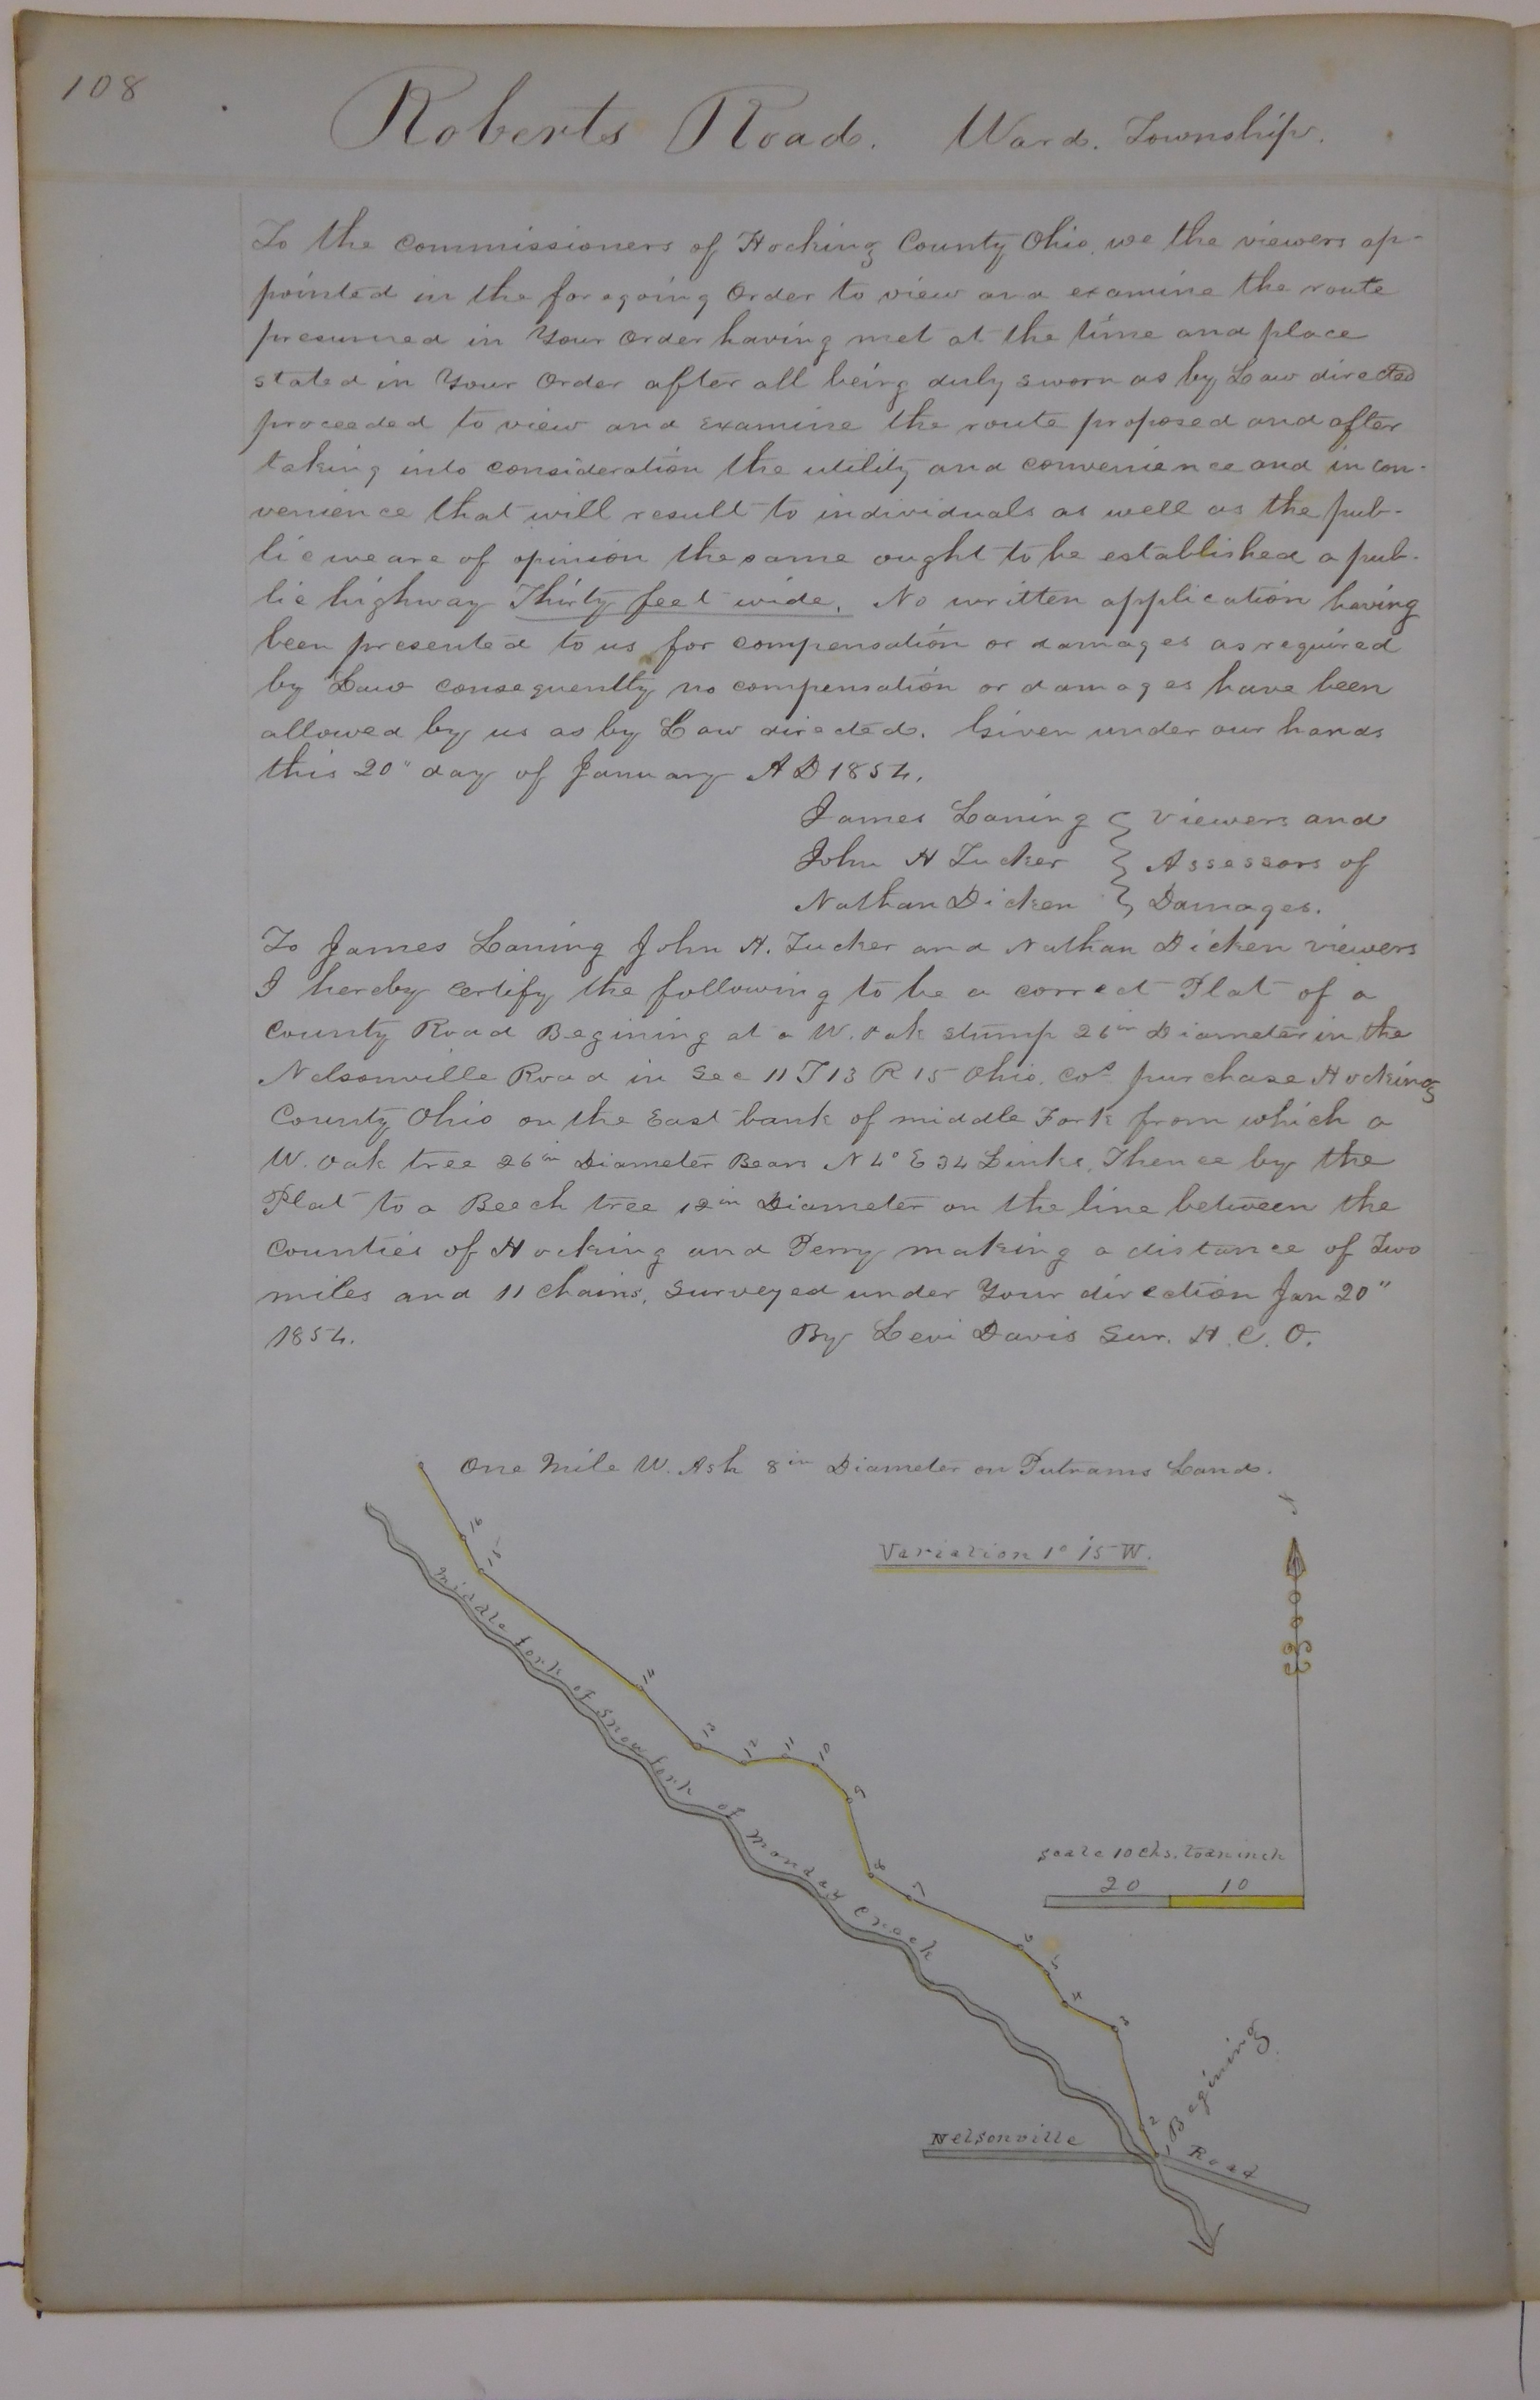 108
Roberts Road. Ward. Township.
To the commissioners of Hocking County Ohio. we the viewers ap-
pointed in the foregoing Order to view and examine the route
presumed in Your Order having met at the time and place
stated in Your Order after all being duly sworn as by Law directed
proceeded to view and Examine the route proposed and after
taking into consideration the utility and convenience and incon-
venience that will result to individuals as well as the pub-
lic we are of opinion the same ought to be established a pub-
lic highway Thirty feet wide. No written application having
been presented to us for compensation or damages as required
by Law consequently no compensation or damages have been
allowed by us as by Law directed. Given under our hands
this 20" day of January A D 1854.
James Laning } Viewers and
John H Tucker } Assessors of
Nathan Dicken } Damages.
To James Laning John H. Tucker and Nathan Dicken viewers
I hereby Certify the following to be a correct Plat of a
County Road Begining at a W. Oak stump 26 in Diameter in the
Nelsonville Road in Sec 11 T 13 R 15 Ohio. Cos purchase Hocking
County Ohio on the East bank of middle Fork from which a
W. Oak tree 26 in Diameter Bears N 4° E 34 Links. Thence by the
Plat to a Beech tree 12 in Diameter on the line between the
Counties of Hocking and Perry making a distance of Two
miles and 11 Chains. Surveyed under Your direction Jan 20"
1854. By Levi Davis Sur. H. C. O.
One Mile W. Ash 8 in Diameter on Putnams Land.
Variation 1° 15 W.
16
15
middle fork of snow fork of Monday Creek
14
13
12
11
10
9
8
7
Scale 10 Chs. to an inch
20 10
6
5
4
3
2
1
Begining
Nelsonville Road